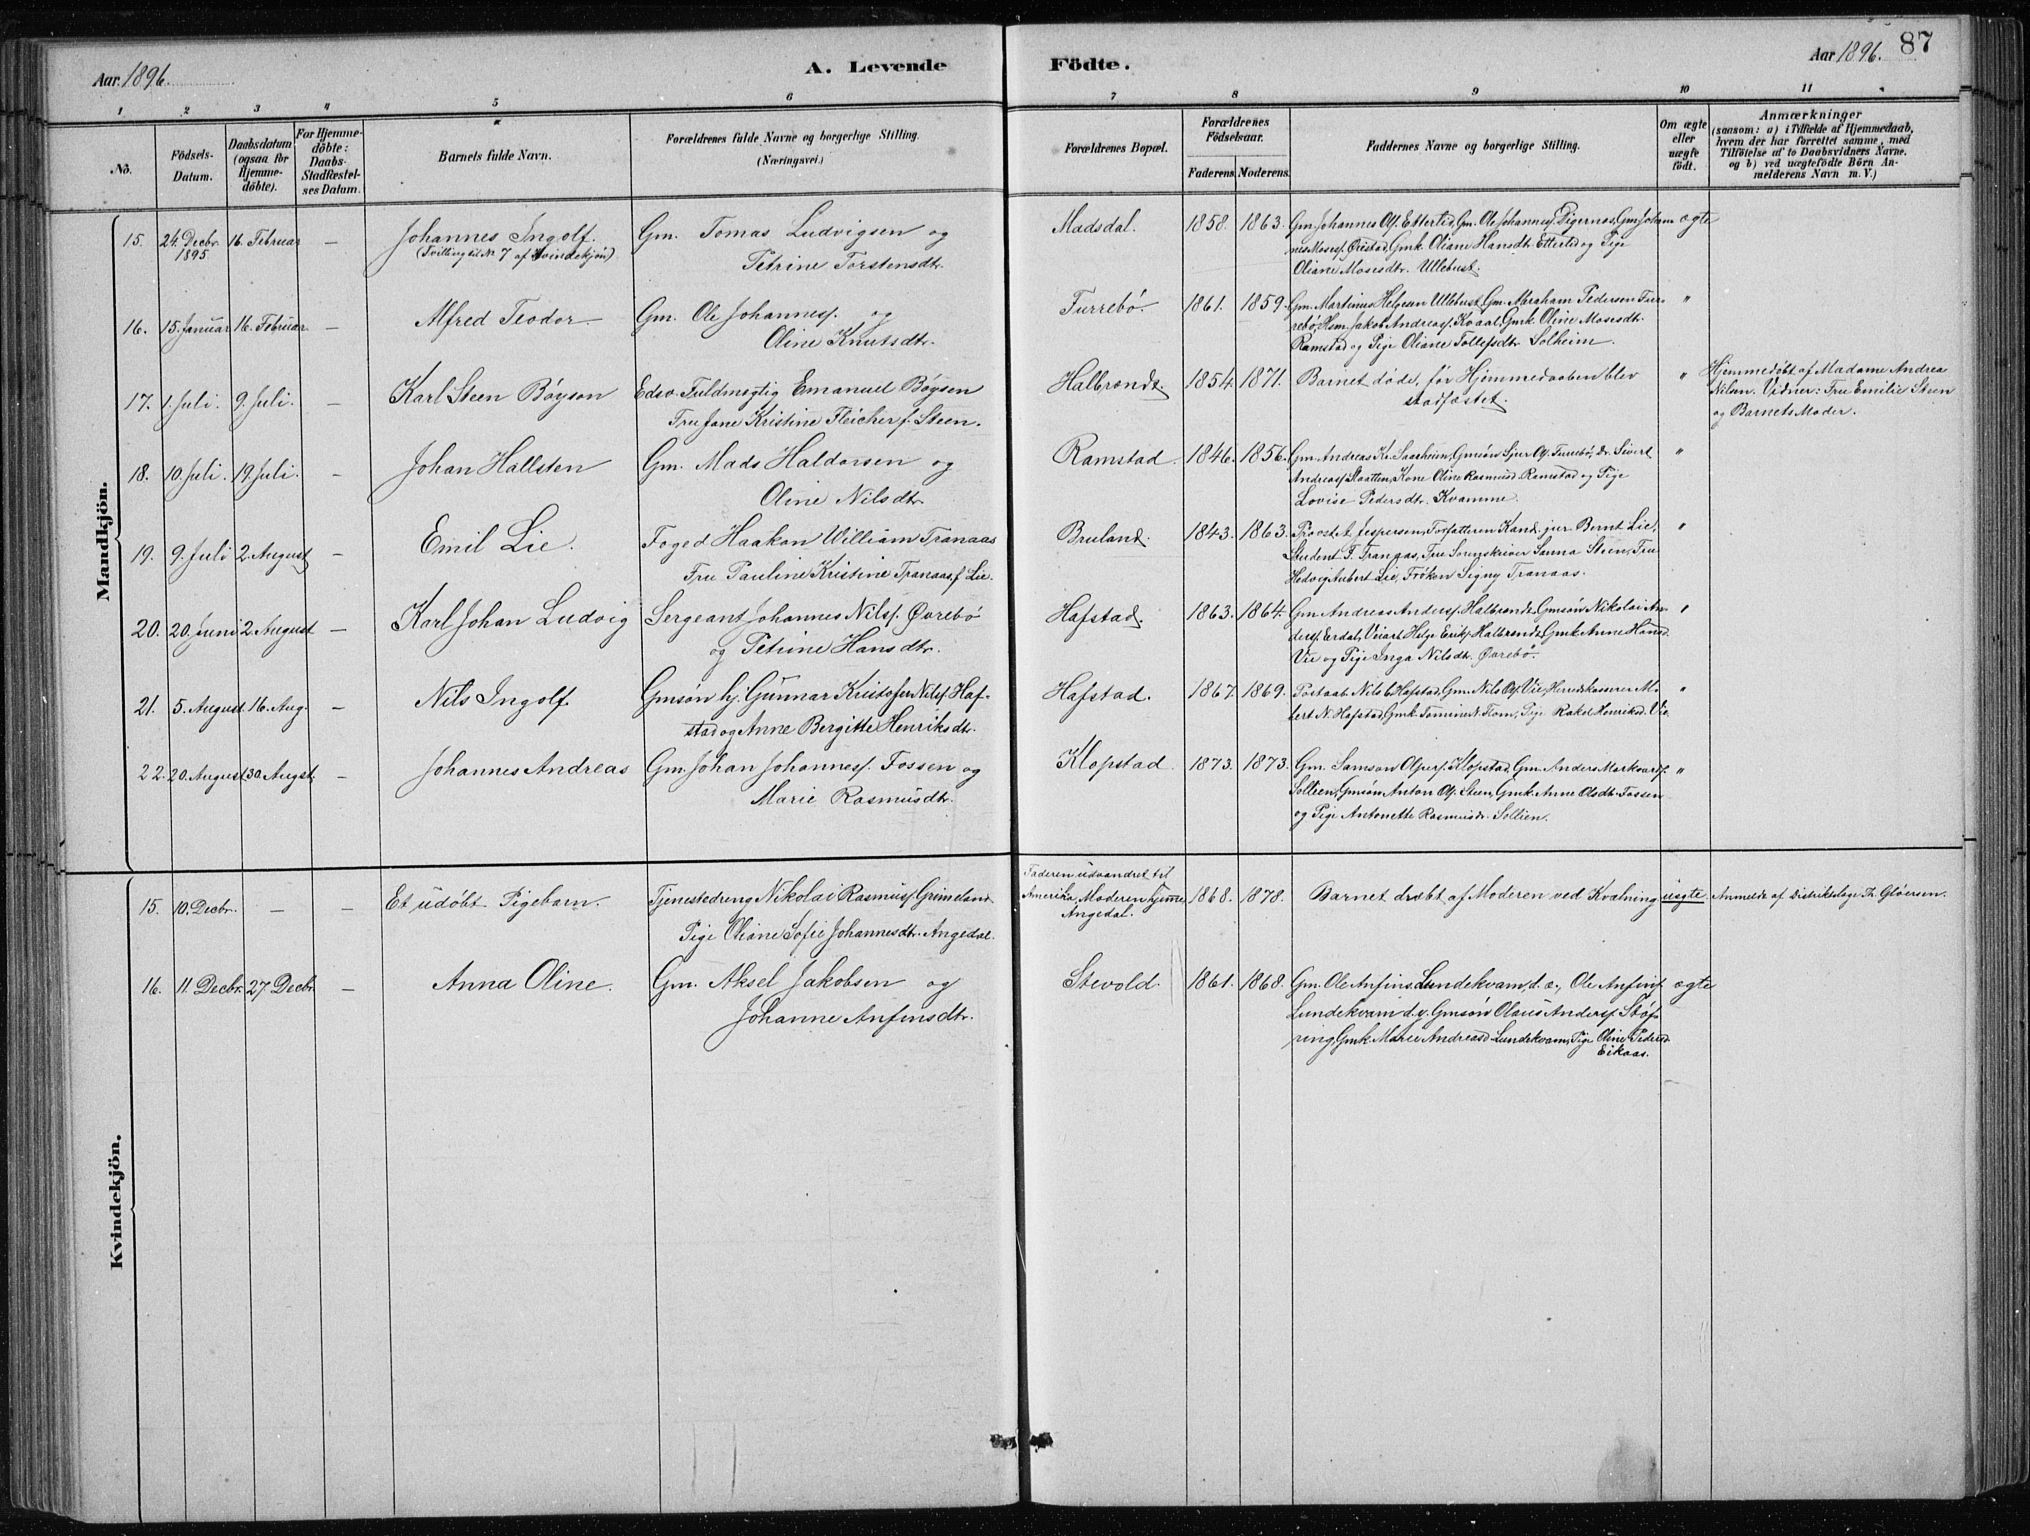 Aar 1896.
A. Levende
Födte.
Aar 1896.
87
1 2 3 4 5 6 7 8 9 10 11
No.
Födsels-
Datum.
Daabsdatum
(ogsaa for
Hjemme-
döbte).
For Hjemme-
döbte:
Daabs-
Stadfæstel-
ses Datum.
Barnets fulde Navn.
Forældrenes fulde Navne og borgerlige Stilling.
(Næringsvei.)
Forældrenes Bopæl.
Forældrenes
Födselsaar.
Faderens. Moderens.
Faddernes Navne og borgerlige Stilling.
Om ægte
eller
uægte
födt.
Anmærkninger
(saasom: a) i Tilfælde af Hjemmedaab,
hvem der har forrettet samme, med
Tilföielse af to Daabsvidners Navne.
og b) ved uægtefödte Börn An-
melderens Navn m. V.)
Mandkjön.
15. 24. Decbr. 16. Februar — Johannes Ingolf. Gm. Tomas Ludvigsen og Madsdal. 1858. 1863. Gm. Johannes Ols. Ettertid, Gm. Ole Johannesf. Digernes, Gm. Johan ægte
1895 (Tvilling til No 7 af Kvindekjön) Petrine Torstensdtr. nes Mosesf. Grestad, Gmk. Oliane Hansdtr. Ettertid og Pige
Oliane Mosesdtr. Ullebust.
16. 15. Januar 16. Februar — Alfred Teodor. Gm. Ole Johannesf. og Furrebö. 1861. 1859. Gm. Martinus Helgesen Ullebust, Gm. Abraham Pedersen Fur- "
Oline Knutsdtr. rebö, Hsm. Jakob Andreasf. Kvaal, Gmk. Oline Mosesdtr.
Ramstad og Pige Oliane Tollefsdtr. Solheim.
17. 1. Juli. 9. Juli. — Karl Steen Böyson Edsv. Fuldmægtig Emanuel Böysen Halbrendt. 1854. 1871. Barnet döde, för Hjemmedaaben blev " Hjemmedöbt af Madame Andrea
Fru Jane Kristine Fleicher f. Steen. stadfæstet. Nilsen. Vidner: Fru Emilie Steen
og Barnets Moder.
18. 10. Juli. 19. Juli. — Johan Hallsten Gm. Mads Haldorsen og Ramstad. 1846. 1856. Gm. Andreas Kr. Saarheim, Gmsön Sjur Ols. Furrebö, Dr. Sivert "
Oline Nilsdtr. Andreasf. Slaatten, Kone Oline Rasmusd. Ramstad og Pige
Lovise Pedersdtr. Kvamme.
19. 9. Juli 2. August — Emil Lie. Foged Haakon William Tranaas Bruland. 1843. 1863. Provst A. Jespersen, Forfatteren Kand. jur. Bernt Lie, "
Fru Pauline Kristine Tranaas f. Lie. Student F. Tranaas, Fru Sorenskriver Sanna Steen, Fru
Hedvig Aubert Lie, Fröken Signy Tranaas.
20. 20. Juni 2. August — Karl Johan Ludvig Sergeant Johannes Nilsf. Övrebö Hafstad. 1863. 1864. Gm. Andreas Andersf. Halbrendt, Gmsön Nikolai An- "
og Petrine Hansdtr. dersf. Erdal, Veiart. Helge Eriksf. Halbrendt, Gmk. Anne Hansd.
Vie og Pige Inga Nilsdtr. Övrebö.
21. 5. August 16. Aug. — Nils Ingolf Gmsön hj. Gunnar Kristofer Nilsf. Haf- Hafstad. 1867. 1869. Postaab. Nils C. Hafstad, Gm. Nils Ols. Vie, Herredskasserer M- "
stad og Anne Bergitte Henriksdtr. bert N. Hafstad, Gmk. Tomine N. Flom, Pige Rakel Henriksd. Vie.
22. 20. August 30. Augst — Johannes Andreas Gm. Johan Johannesf. Fossen og Klopstad. 1873. 1873. Gm. Samson Olpersf. Klopstad, Gm. Anders Markvardf. "
Marie Rasmusdtr. Sollien, Gmsön Anton Ols. Steen, Gmk. Anne Olsdtr. Fossen
og Pige Antonette Rasmusdr. Sollien.
Kvindekjön.
15. 10. Decbr. — — Et udöbt Pigebarn. Tjenestedreng Nikolai Rasmusf. Grimeland. Faderen udvandret til 1868. 1878. Barnet dræbt af Moderen ved Kvælning uægte Anmeldt af Distriktslæge Th. Glöersen.
Pige Oliane Sofie Johannesdtr. Angedal. Amerika, Moderen hjemme
Angedal.
16. 11. Decbr. 27 Decbr. — Anna Oline. Gm. Aksel Jakobsen og Stevold. 1861. 1868. Gm. Ole Anfins. Lundekvam, d. æ., Ole Anfinf. ægte
Johanne Anfinsdtr. Lundekvam d. y. Gmsön Olaus Andersf. Stöf-
ring, Gmk. Marie Andreasd. Lundekvam, Pige Oline Pedersd.
Eikaas.